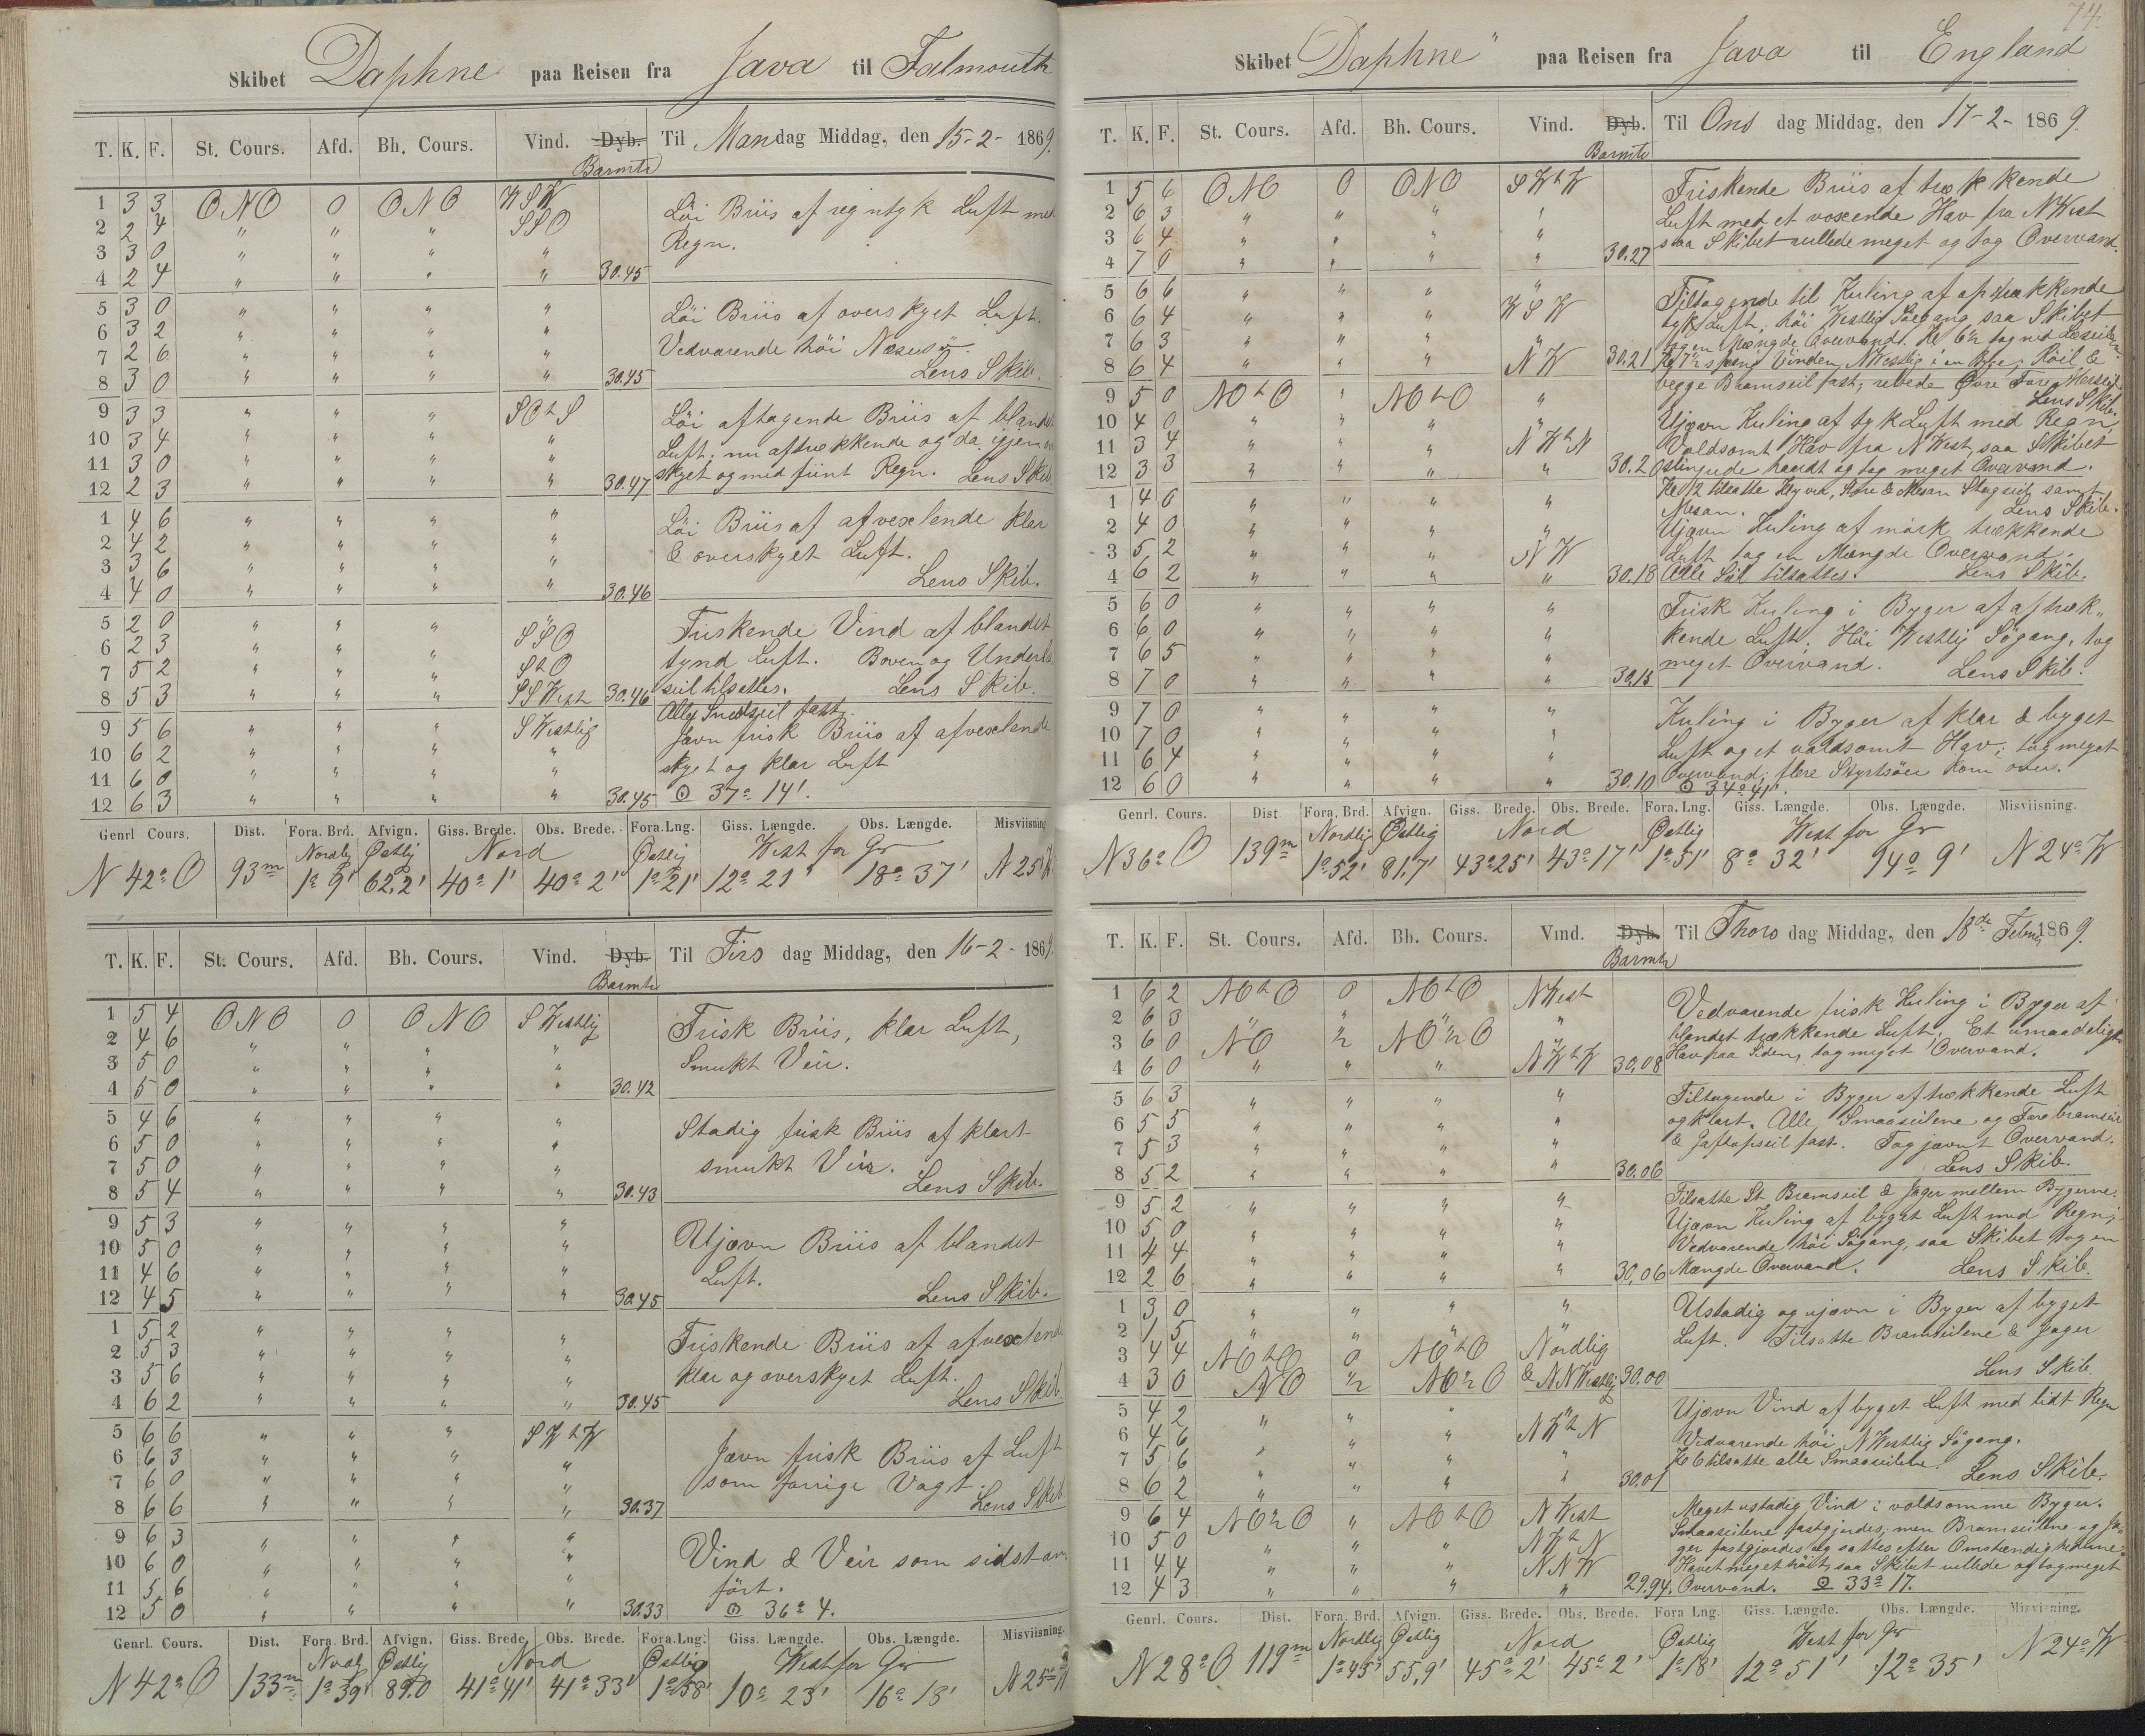 Skibet Daphne paa Reisen fra Java til Falmouth
T. K. F. St. Cours. Afd. Bh. Cours. Vind. Dyb. Til Mandag Middag, den 15-2-1869.
Barmtr
1 3 3 ONO 0 ONO WSW Löi Briis af regntyk Luft med
2 2 4 " " " SSO Regn.
3 3 0 " " " "
4 2 4 " " " " 30.45
5 3 0 " " " " Löi Briis af overskyet Luft.
6 3 2 " " " " Vedvarende höi
7 2 6 " " " " Lens Skib.
8 3 0 " " " " 30.45
9 3 3 " " " SOtS Löi aftagende Briis af blandet
10 3 4 " " " " Luft; nu aftrækkende og da igjen
11 3 0 " " " " skyet og med fiint Regn. Lens Skib.
12 2 3 " " " " 30.47
1 4 6 " " " " Löi Briis af afvexlende klar
2 4 2 " " " " & overskyet Luft.
3 3 6 " " " " Lens Skib.
4 4 0 " " " " 30.46
5 2 0 " " " " Friskende Vind af blandet
6 2 3 " " " SSO tynd Luft. Boven og Underlæ
7 5 2 " " " StO seil tilsattes. Lens Skib.
8 5 3 " " " SSWest 30.46
9 5 6 " " " SWestlig Alle Smaaseil fast.
10 6 2 " " " " Jævn frisk Briis af afvexlende
11 6 0 " " " " skyet og klar Luft
12 6 3 " " " " 30.45 ⊙ 37° 14'.
Genrl Cours. Dist. Fora. Brd. Afvign. Giss. Brede. Obs. Brede. Fora. Lng. Giss. Længde. Obs. Længde. Misviisning
Nordlig Østlig Nord Østlig West for Gr
N 42° O 93m 1° 9' 62,2' 40° 1' 40° 2' 1° 21' 12° 21' 18° 37' N 25° W
T. K. F. St. Cours. Afd. Bh. Cours. Vind. Dyb. Til Tirsdag Middag, den 16-2-1869.
Barmtr
1 5 4 ONO 0 ONO SWestlig Frisk Briis, klar Luft,
2 4 6 " " " " Smukt Veir.
3 5 0 " " " "
4 5 0 " " " " 30.42
5 4 6 " " " " Stadig frisk Briis af klart
6 5 0 " " " " smukt Veir.
7 5 0 " " " " Lens Skib.
8 5 4 " " " " 30.43
9 5 3 " " " " Ujævn Briis af blandet
10 5 0 " " " " Luft.
11 4 6 " " " " Lens Skib.
12 4 5 " " " " 30.45
1 5 2 " " " " Friskende Briis af afvexlende
2 5 3 " " " " klar og overskyet Luft.
3 5 6 " " " " Lens Skib.
4 6 2 " " " " 30.45
5 6 6 " " " SWtW Jævn frisk Briis af Luft
6 6 3 " " " " som forrige Vagt.
7 6 0 " " " " Lens Skib
8 6 6 " " " " 30.37
9 6 3 " " " " Vind & Veir som sidst an
10 6 0 " " " " fört.
11 5 6 " " " "
12 5 0 " " " " 30.33 ⊙ 36° 4.
Genrl. Cours. Dist. Fora. Brd. Afvign. Giss. Brede. Obs. Brede. Fora. Lng. Giss. Længde. Obs. Længde. Misviisning.
Nordl Østlig Nord Østlig West for Gr
N 42° O 133m 1° 39' 89.0 41° 41' 41° 33' 1° 58' 10° 23' 16° 18' N 25° W
74.
Skibet "Daphne" paa Reisen fra Java til England
T. K. F. St. Cours. Afd. Bh. Cours. Vind. Dyb. Til Onsdag Middag, den 17-2-1869.
Barmtr
1 5 6 ONO 0 ONO SWtW Friskende Briis af trækkende
2 6 3 " " " " Luft med et voxende Hav fra NWest
3 6 4 " " " " saa Skibet rullede meget og tog Overvand.
4 7 0 " " " " 30.27
5 6 6 " " " " Tiltagende til Kuling af optrækkende
6 6 4 " " " WSW tyk Luft, höi Westlig Söegang saa Skibet
7 6 3 " " " " tog en Mængde Overvand. Kl 6½ tog ned Læseilene
8 6 4 " " " NW 30.21 Kl 7½ sprang Vinden NWestlig i en Byge; Röil &
9 5 0 NOtO " NOtO " begge Bramseil fast, rebede Övre Fore Merseil.
Lens Skib.
10 4 0 " " " " Ujævn Kuling af tyk Luft med Regn,
11 3 4 " " " NWtN Voldsomt Hav fra NWest, saa Skibet
12 3 3 " " " " 30.20 slingrede haardt og tog meget Overvand.
Kl 12 tilsatte Klyver, Store & Mesan Stagseil samt
1 4 6 " " " " Mesan. Lens Skib.
2 4 0 " " " " Ujævn Kuling af mörk trækkende
3 5 2 " " " NW Luft tog en Mængde Overvand.
4 6 2 " " " " 30.18 Alle Seil tilsattes. Lens Skib.
5 6 0 " " " " Frisk Kuling i Byger af aftræk-
6 6 0 " " " " kende Luft. Höi Westlig Sögang, tog
7 6 5 " " " " meget Overvand. Lens Skib.
8 7 0 " " " " 30.15
9 7 0 " " " " Kuling i Byger af klar & byget
10 7 0 " " " " Luft og et voldsomt Hav; tog meget
11 6 4 " " " " Overvand; flere Styrtsöer kom over.
12 6 0 " " " " 30.10 ⊙ 34° 41'.
Genrl. Cours. Dist Fora. Brd. Afvign. Giss. Brede. Obs. Brede. Fora. Lng. Giss. Længde. Obs. Længde. Misviisning.
Nordlig Østlig Nord Østlig West for Gr
N 36° O 139m 1° 52' 81,7' 43° 25' 43° 17' 1° 51' 8° 32' 14° 9' N 24° W
T. K. F. St. Cours. Afd. Bh. Cours. Vind. Dyb. Til Thorsdag Middag, den 18de Febru 1869.
Barmtr
1 6 2 NOtO 0 NOtO NWest Vedvarende frisk Kuling i Byger af
2 6 3 " " " " blandet trækkende Luft; Et umaadeligt
3 6 0 NO ½ NO½O " Hav paa Siden, tog meget Overvand.
4 6 0 " " " NWtW 30.08
5 6 3 " " " " Tiltagende i Byger af trækkende Luft
6 5 5 " " " " og klart. Alle Smaaseilene og Forebramseil
7 5 3 " " " " & Gaftopseil fast. Tog jævnt Overvand.
8 5 2 " " " " 30.06 Lens Skib.
9 5 2 " " " " Tilsatte St. Bramseil & Jager mellem Bygerne.
10 5 0 " " " " Ujævn Kuling af byget Luft med Regn;
11 4 4 " " " " Vedvarende höi Sögang, saa Skibet tog en
12 2 6 " " " " 30,06 Mængde Overvand. Lens Skib.
1 3 0 " " " " Ustadig og ujævn i Byger af byget
2 1 5 " " " " Luft. Tilsatte Bramseilene & Jager
3 4 4 NOtO 0 NOtO Nordlig
4 3 0 NO ½ NO½O & NNWestlig 30.00 Lens Skib.
5 4 2 " " " " Ujævn Vind af byget Luft med lidt Regn
6 4 6 " " " NWtN Vedvarende höi NWestlig Sögang.
7 5 6 " " " " Kl 6 tilsatte alle Smaaseilene.
8 6 2 " " " " 30.01 Lens Skib.
9 6 4 NO½O " NOtO NWest Meget ustadig Vind i voldsomme Byger.
10 5 0 " " " NWtN Smaaseilene fastgjordes; men Bramseilene og Ja-
11 4 4 " " " NNW ger fastgjordes og sattes efter Omstændighederne.
12 4 3 " " " " Havet meget höit, saa Skibet rullede og tog meget
29.94. Overvand. ⊙ 33° 17.
Genrl. Cours. Dist. Fora. Brd. Afvign. Giss. Brede. Obs. Brede. Fora Lng. Giss. Længde. Obs. Længde. Misviisning.
Nordlig Østlig Nord Østlig West for Gr
N 28° O 119m 1° 45' 55,9' 45° 2' 45° 2' 1° 18' 12° 51' 12° 35' N 24° W